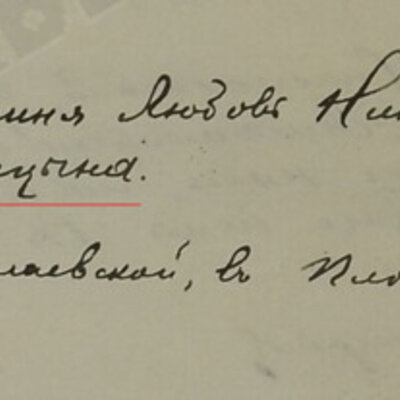 иня Любовь Ни
цына.
лаевской, въ Пло